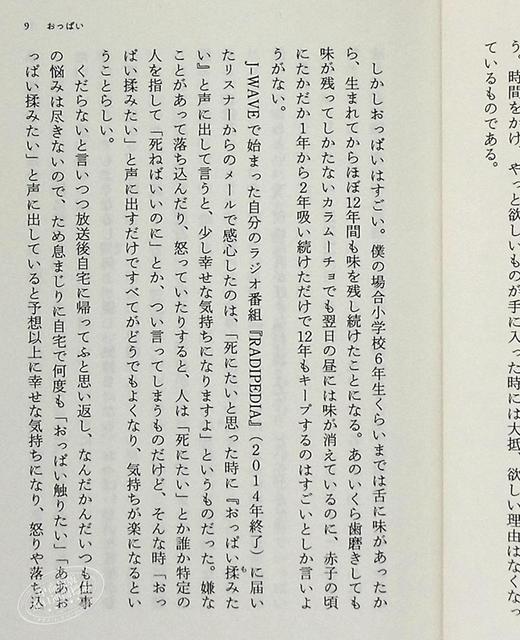 う。時間をかけ、やっと欲しいものが手に入った時には大抵、欲しい理由はなくなっ
ているものである。
9 おっぱい
しかしおっぱいはすごい。僕の場合小学校6年生くらいまでは舌に味があったか
ら、生まれてからほぼ12年間も味を残し続けたことになる。あのいくら歯磨きしても
味が残ってしかたないカラムーチョでも翌日の昼には味が消えているのに、赤子の頃
にたかだか1年から2年吸い続けただけで12年もキープするのはすごいとしか言いよ
うがない。
J-WAVEで始まった自分のラジオ番組『RADIPEDIA』(2014年終了)に届い
たリスナーからのメールで感心したのは、「死にたいと思った時に『おっぱい揉みた
い』と声に出して言うと、少し幸せな気持ちになりますよ」というものだった。嫌な
ことがあって落ち込んだり、怒っていたりすると、人は「死にたい」とか誰か特定の
人を指して「死ねばいいのに」とか、つい言ってしまうものだけど、そんな時「おっ
ぱい揉みたい」と声に出すだけですべてがどうでもよくなり、気持ちが楽になるとい
うことらしい。
くだらないと言いつつ放送後自宅に帰ってふと思い返し、なんだかんだいつも仕事
の悩みは尽きないので、ため息まじりに自宅で何度も「おっぱい触りたい」「ああお
っぱい揉みたい」と声に出していると予想以上に幸せな気持ちになり、怒りや落ち込